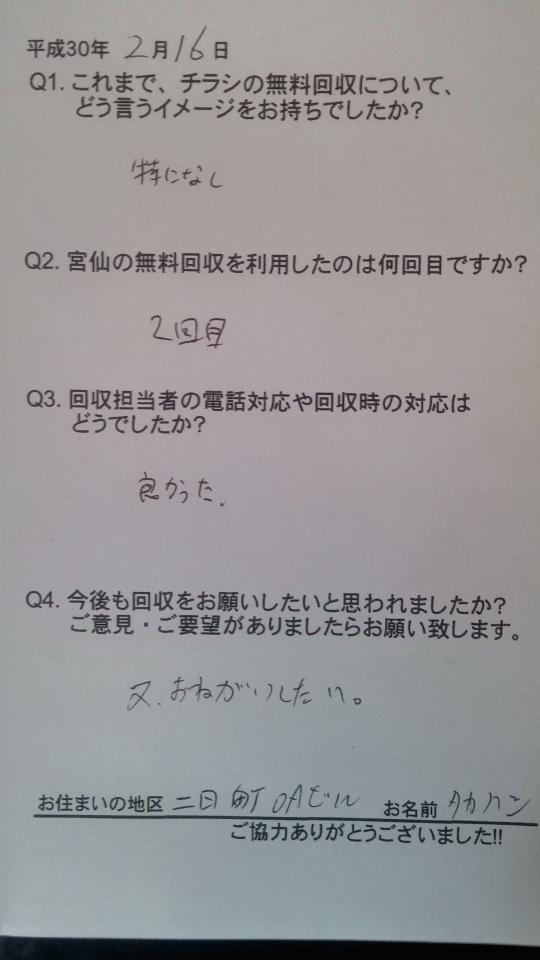 平成30年 2月16日
Q1. これまで、チラシの無料回収について、
どう言うイメージをお持ちでしたか?
特になし
Q2. 宮仙の無料回収を利用したのは何回目ですか?
2回目
Q3. 回収担当者の電話対応や回収時の対応は
どうでしたか?
良かった.
Q4. 今後も回収をお願いしたいと思われましたか?
ご意見・ご要望がありましたらお願い致します。
又、おねがいしたい。
お住まいの地区 二日町OAビル お名前 タカハシ
ご協力ありがとうございました!!